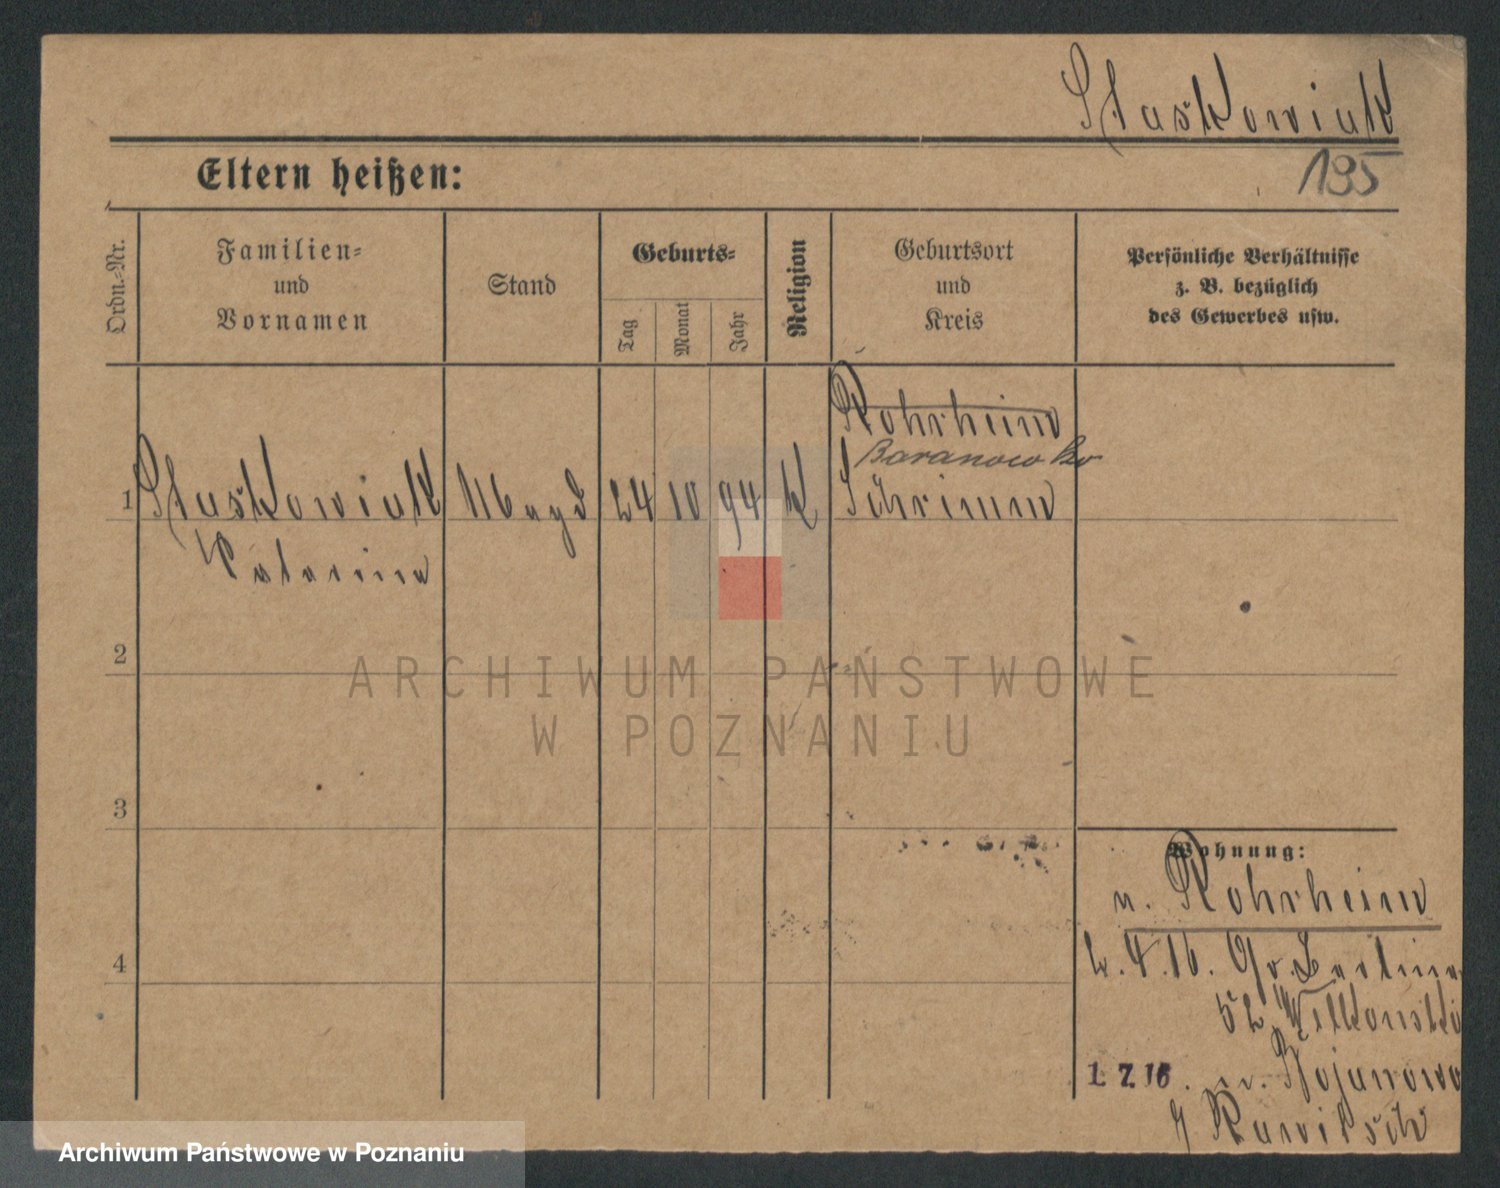 Staskowiak
195
Eltern heißen:
Ordn.-Nr.
Familien-
und
Vornamen
Stand
Geburts-
Tag
Monat
Jahr
Religion
Geburtsort
und
Kreis
Persönliche Verhältnisse
z. B. bezüglich
des Gewerbes usw.
Rohrheim
Baranowko
1 Staskowiak Magd 24 10 94 K Schrimm
Katarina
2
ARCHIWUM PAŃSTWOWE
W POZNANIU
3
Wohnung:
n. Rohrheim
4
4.16. Gr. Berliner
52 Wilkonski
1. 7. 16. n. Bojanowo
Rawitsch
Archiwum Państwowe w Poznaniu